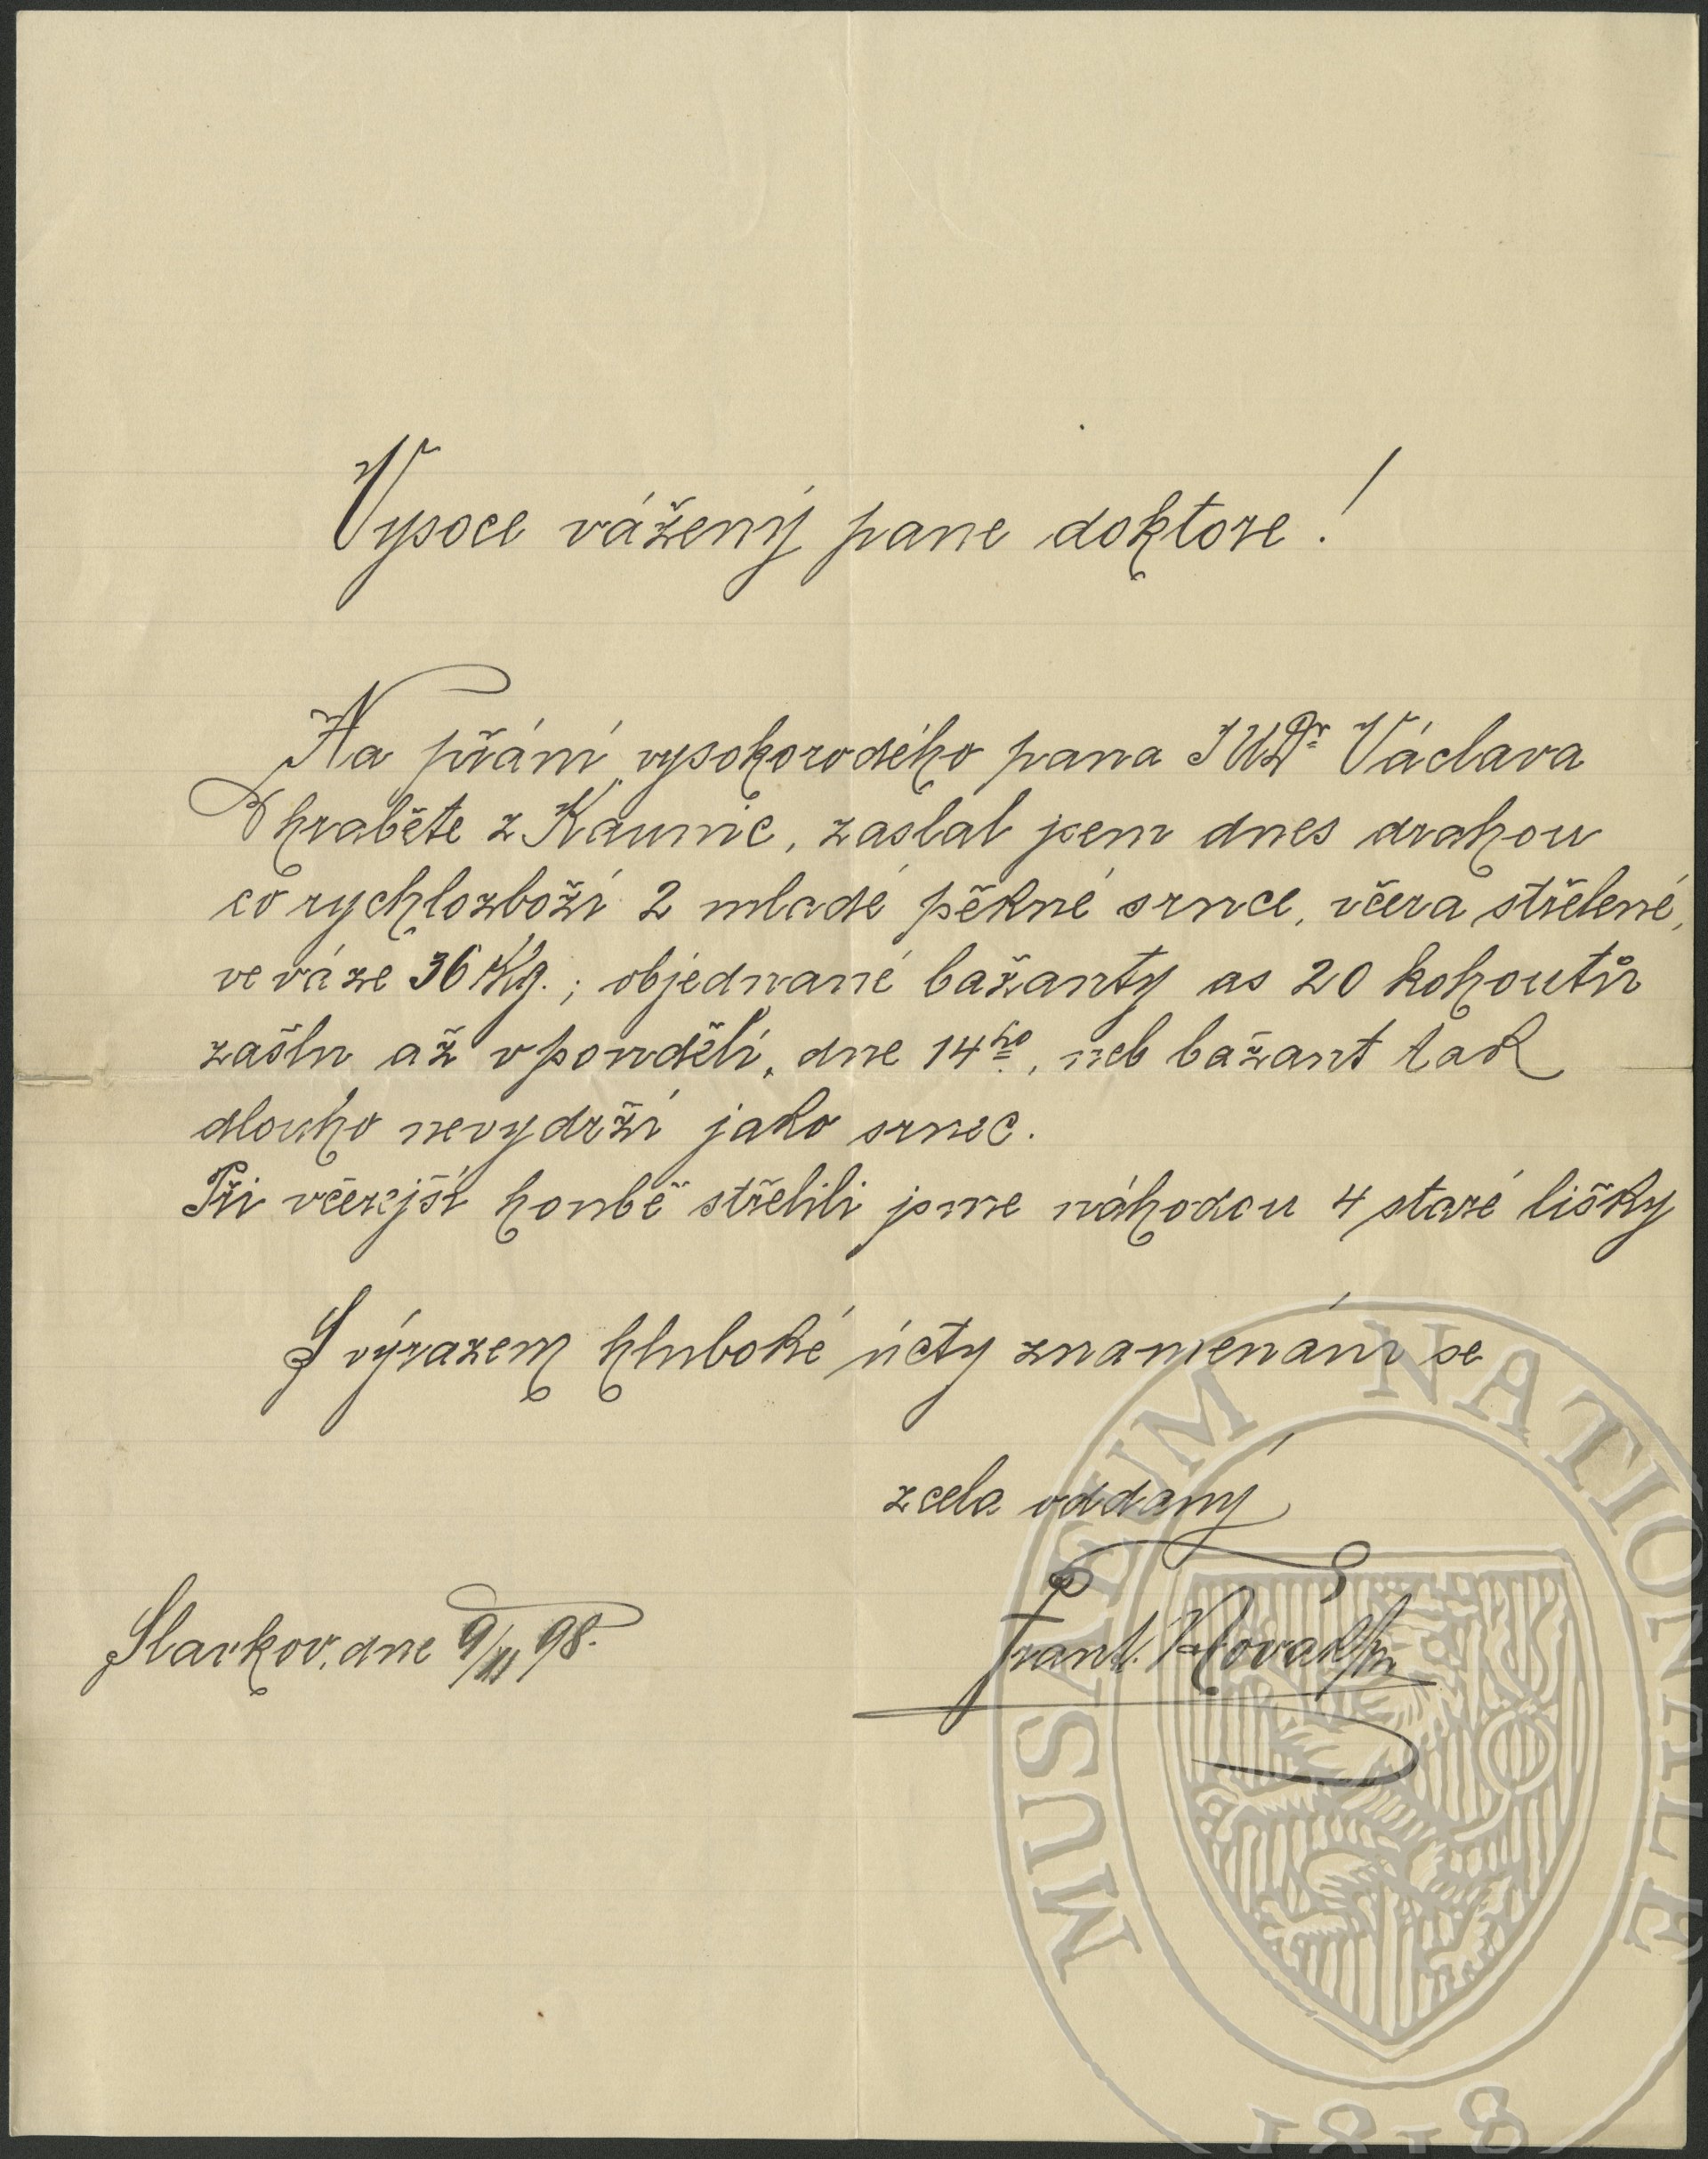 Vysoce vážený pane doktore!
Na přání vysokorodého pana JUDr. Václava
hraběte z Kaunic, zaslal jsem dnes drahou
co rychlozboží 2 mladé pěkné srnce, včera střelené,
ve váze 36 Kg.; objednané bažanty as 20 kohoutů
zašlu až v pondělí, dne 14ho, neb bažant tak
dlouho nevydrží jako srnec.
Při včerejší honbě střelili jsme náhodou 4 staré lišky
S výrazem hluboké úcty znamenám se
zcela oddaný
Frant. Novák
Slavkov, dne 9/XI 98.
MUSAEUM NATIONALE
1818